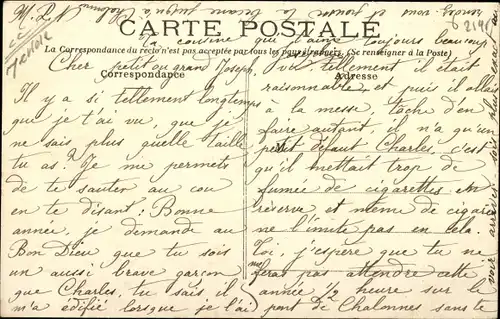 CARTE POSTALE
La Correspondance du recto n'est pas acceptée par tous les pays étrangers. (Se renseigner à la Poste)
Correspondance
Adresse
Cher petit ou grand Joseph,
Il y a si tellement longtemps
que je t'ai vu, que je
ne sais plus quelle taille
tu as? Je me permets
de te sauter au cou
en te disant: Bonne
année, je demande au
Bon Dieu que tu sois
un aussi brave garçon
que Charles, tu sais il
m'a édifié lorsque je l'ai
vu tellement il était
raisonnable, et puis il allait
à la messe, tâche d'en
faire autant, il n'a qu'un
petit défaut Charles, c'est
qu'il mettait trop de
fumée de cigarettes en
réserve et même de cigare
ne l'imite pas en cela.
Toi, j'espère que tu ne
feras pas attendre cette
année 1/2 heure sur le
pont de Chalonnes sans te
la cousine qui t'aime toujours beaucoup